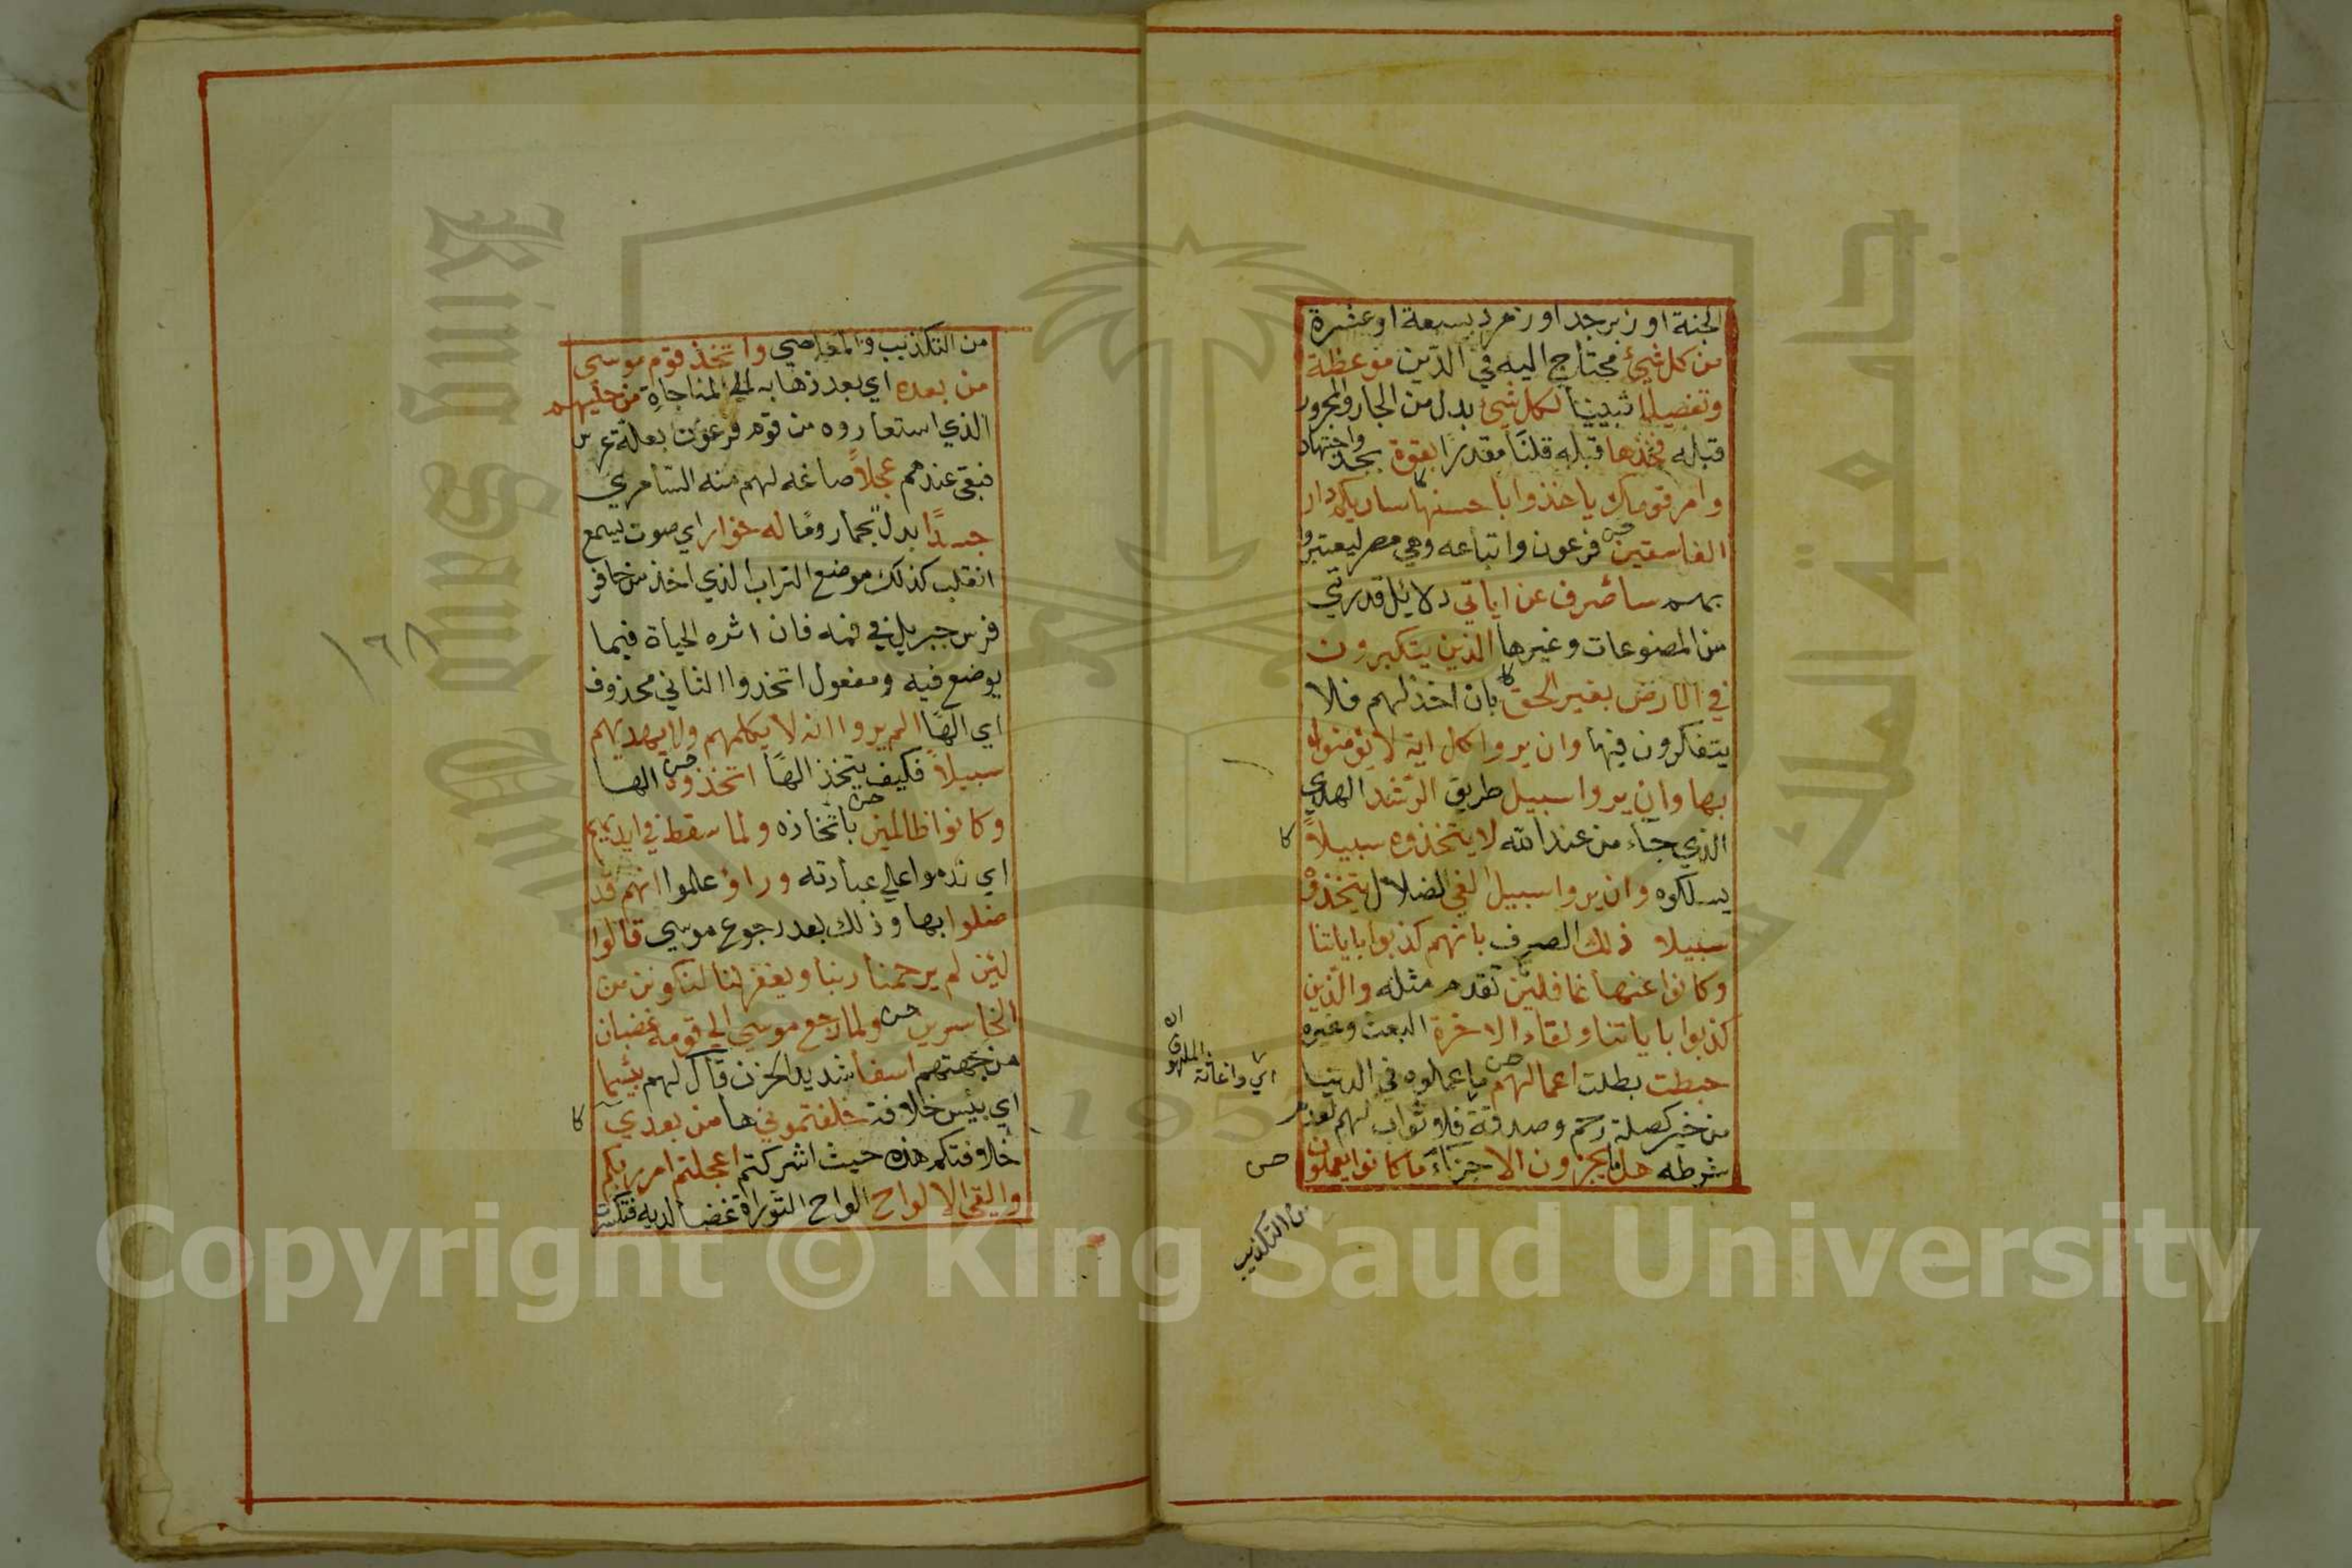 الجنة او زبرجد او زمرد سبعة او عشرة
من كل شيئ محتاج اليه في الدين موعظة
وتفصيلا تبيينا لكل شيئ بدل من الجار والمجرور
قبله فخذها قبله قلنا مقدرا بقوة بجد واجتهاد
وامر قومك ياخذوا باحسنها ساريكم دار
الفاسقين فرعون واتباعه وهي مصر ليعتبروا
بهم ساصرف عن اياتي دلائل قدرتي
من المصنوعات وغيرها الذين يتكبرون
في الارض بغير الحق بان اخذلهم فلا
يتفكرون فيها وان يروا كل اية لا يؤمنوا
بها وان يروا سبيل طريق الرشد الهدي
الذي جاء من عند الله لا يتخذوه سبيلاً
يسلكوه وان يروا سبيل الغي الضلال يتخذوه
سبيلا ذلك الصرف بانهم كذبوا باياتنا
وكانوا عنها غافلين تقدم مثله والذين
كذبوا باياتنا ولقاء الاخرة البعث وغيره
حبطت بطلت اعمالهم ما عملوه في الدنيا
من خير كصلة رحم وصدقة فلا ثواب لهم لعدم
شرطه هل يجزون الا جزاء ما كانوا يعملون
اي واغاثة
الملهوف
من التكذيب
من التكذيب والمعاصي واتخذ قوم موسي
من بعده اي بعد ذهابه الي المناجاة من حليهم
الذي استعاروه من قوم فرعون بعلة عرس
فبقي عندهم عجلاً صاغه لهم منه السامري
جسدًا بدل لحما ودما له خوار اي صوت يسمع
انقلب كذلك موضع التراب الذي اخذ من حافر
فرس جبريل في فمه فان اثره الحياة فيما
يوضع فيه ومفعول اتخذوا الثاني محذوف
اي الها الم يروا انه لا يكلمهم ولا يهديهم
سبيلاً فكيف يتخذ الها اتخذوه الها
وكانوا ظالمين باتخاذه ولما سقط في ايديهم
اي ندموا علي عبادته وراؤ علموا انهم قد
ضلوا بها وذلك بعد رجوع موسي قالوا
لئن لم يرحمنا ربنا ويغفر لنا لنكونن من
الخاسرين ولما رجع موسي الي قومه غضبان
من جهتهم اسفا شديد الحزن قال لهم بئسما
اي بئس خلافة خلفتموني ها من بعدي
خلافتكم هذه حيث اشركتم اعجلتم امر ربكم
والقي الالواح الواح التوراة غضبا لربه فتكسرت
١٦٨
King Saud University
جامعة الملك سعود
1957
Copyright © King Saud University